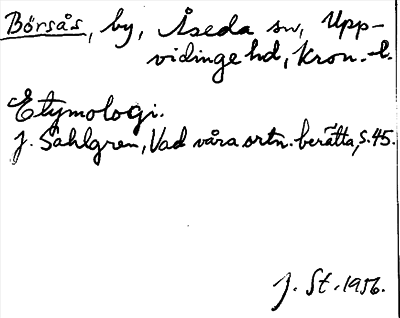 Börsås, by, Åseda sn, Upp-
vidinge hd, Kron. l.
Etymologi.
J. Sahlgren, Vad våra ortn. berätta, s. 45.
J. St. 1956.